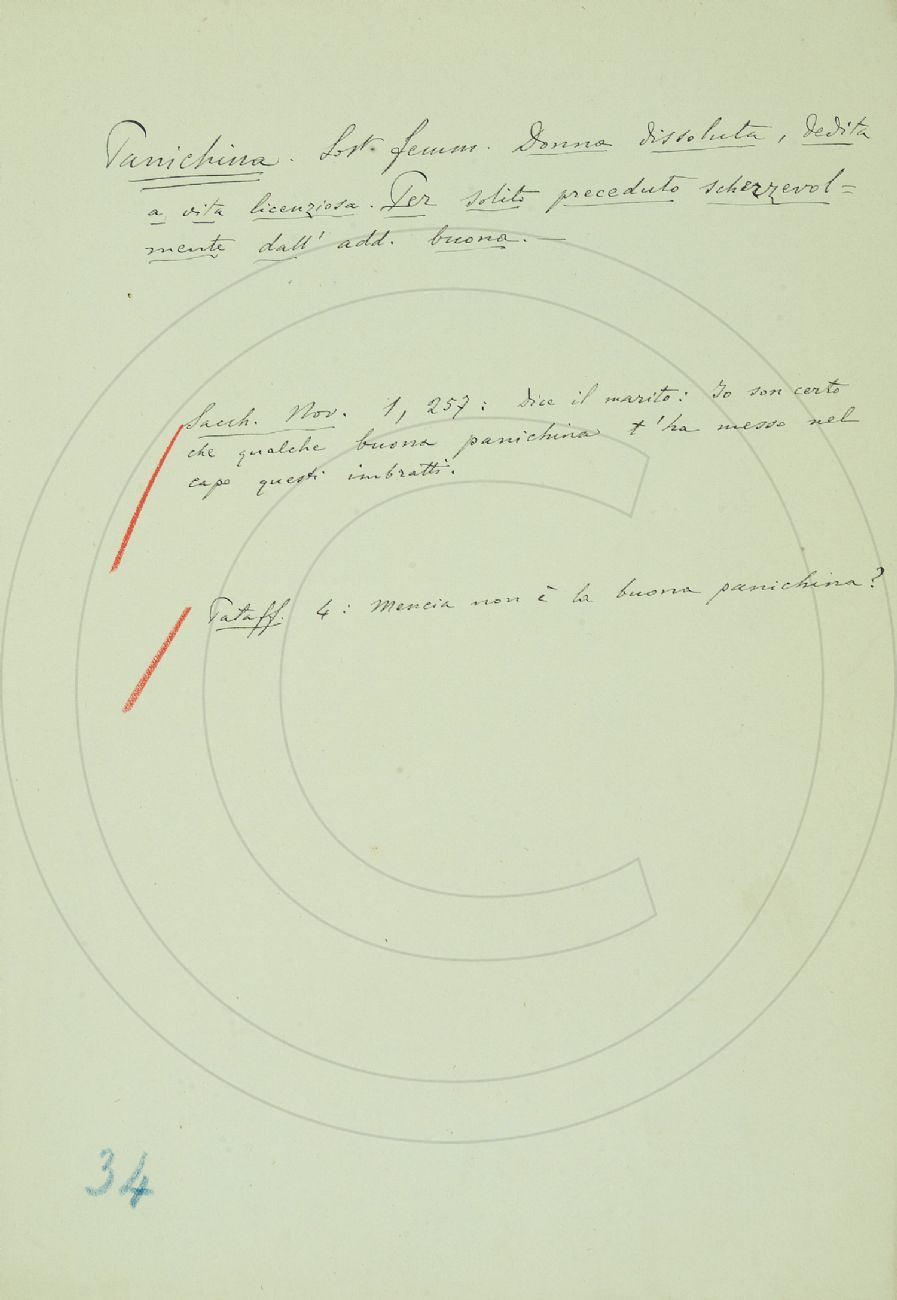 Panichina. Sost. femm. Donna dissoluta, dedita
a vita licenziosa. Per solito preceduto scherzevol=
mente dall' add. buona.—
Sacch. Nov. 1, 257: Dice il marito: Io son certo
che qualche buona panichina t'ha messo nel
capo questi imbratti.
Pataff. 4: Mencia non è la buona panichina?
34